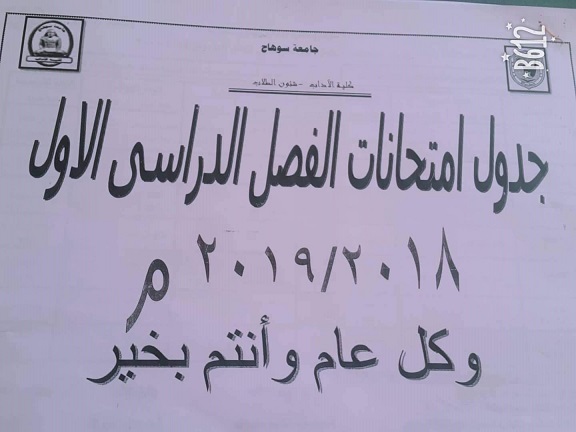 جامعة سوهاج
B612
كلية الآداب - شئون الطلاب
جدول امتحانات الفصل الدراسى الاول
٢٠١٩/٢٠١٨ م
وكل عام وأنتم بخير